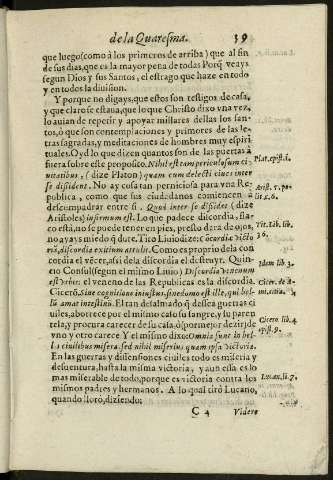 de la Quaresma. 39
que luego (como à los primeros de arriba) que al fin
de sus dias, que es la mayor pena de todas Porq̃ veays
segun Dios y sus Santos, el estrago que haze en todo
y en todos la diuision.
Y porque no digays, que estos son testigos de casa,
y que claro se estaua, que lo que Christo dixo vna vez,
lo auian de repetir y apoyar millares dellas los san-
tos, ò que son contemplaciones y primores de las le-
tras sagradas, y meditaciones de hombres muy espiri
tuales. Oyd lo que dizen quantos son de las puertas à
fuera sobre este proposito. Nihil est tam periculosum ci
uitatibus, (dize Platon) quam cum delecti ciues inter
se disident. No ay cosa tan perniciosa para vna Re-
publica, como que sus ciudadanos comiencen à
descompadrar entre si. Quod inter se disidet (dize
Aristoles) infirmum est. Lo que padece discordia, fla-
co està, no se puede tener en pies, presto dara de ojos,
no ayays miedo q̃ dure. Tito Liuio dize; Cōcordia victo
ria, discordia exitium attulit. Como es proprio dela con
cordia el vẽcer, assi dela discordia el destruyr. Quin-
cio Consul (segun el mismo Liuio) Discordia venenum
est vrbis: el veneno de las Republicas es la discordia.
Cicerō. Sine cognitione iniustus, sine domo est ille, qui bel-
lum amat intestinum. El tan desalmado q̃ dessea guerras ci
uiles, aborrece por el mismo caso su sangre, y su paren
tela, y procura carecer de su casa, ò (por mejor dezir) de
vno y otro carece. Y el mismo dize: Omnia sunt in bel-
lis ciuilibus misera, sed nihil miserius quam ipsa victoria.
En las guerras y dissensiones ciuiles todo es miseria y
desuentura, hasta la misma victoria, y aun essa es lo
mas miserable de todo, porque es victoria contra los
mismos padres y hermanos. A lo qual tirò Lucano,
quando llorò, diziendo;
C 4 Videre
Plat. epist.
Arist. 5. po-
lit. c. 6.
Tit. Lib. lib.
36.
Idem lib. 3.
Cicer. de A-
Cicero lib. 4
epist. 9.
Lucan. li. 7.